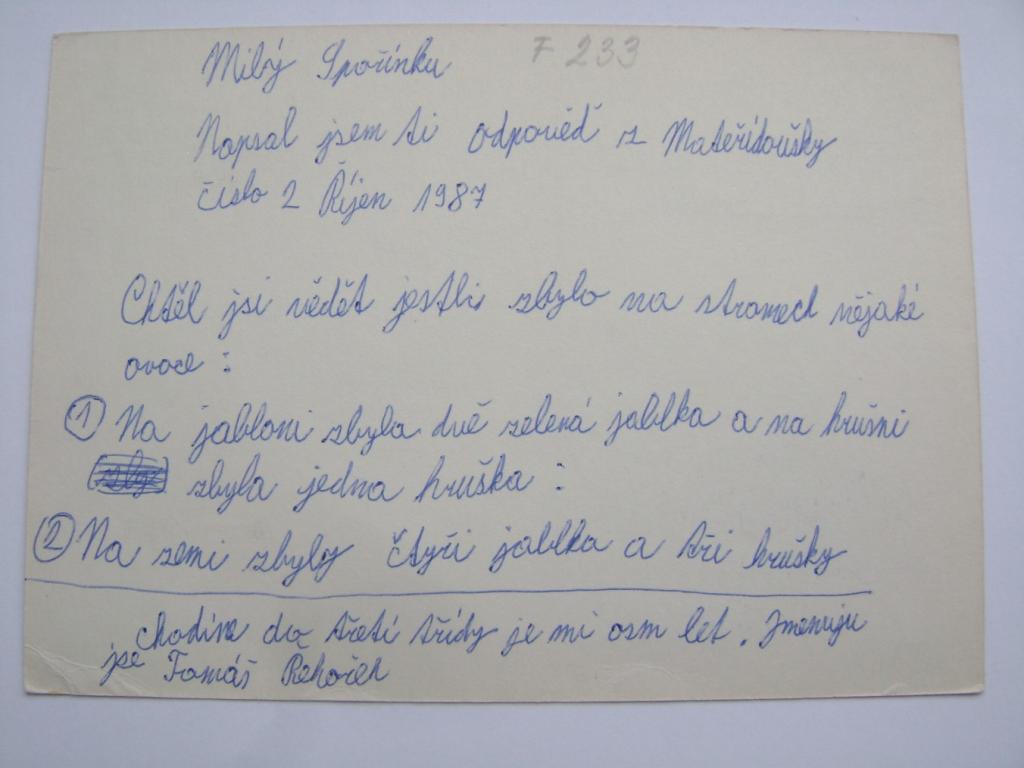 Milý Spořínku F 233
Napsal jsem ti odpověď z Mateřídoušky
číslo 2 Říjen 1987
Chtěl jsi vědět jestli zbylo na stromech nějaké
ovoce :
1 Na jabloni zbyla dvě zelená jablka a na hrušni
zbyla jedna hruška :
2 Na zemi zbyly čtyři jablka a tři hrušky
chodím do třetí třídy je mi osm let. Jmenuju
jse Tomáš Řehořek